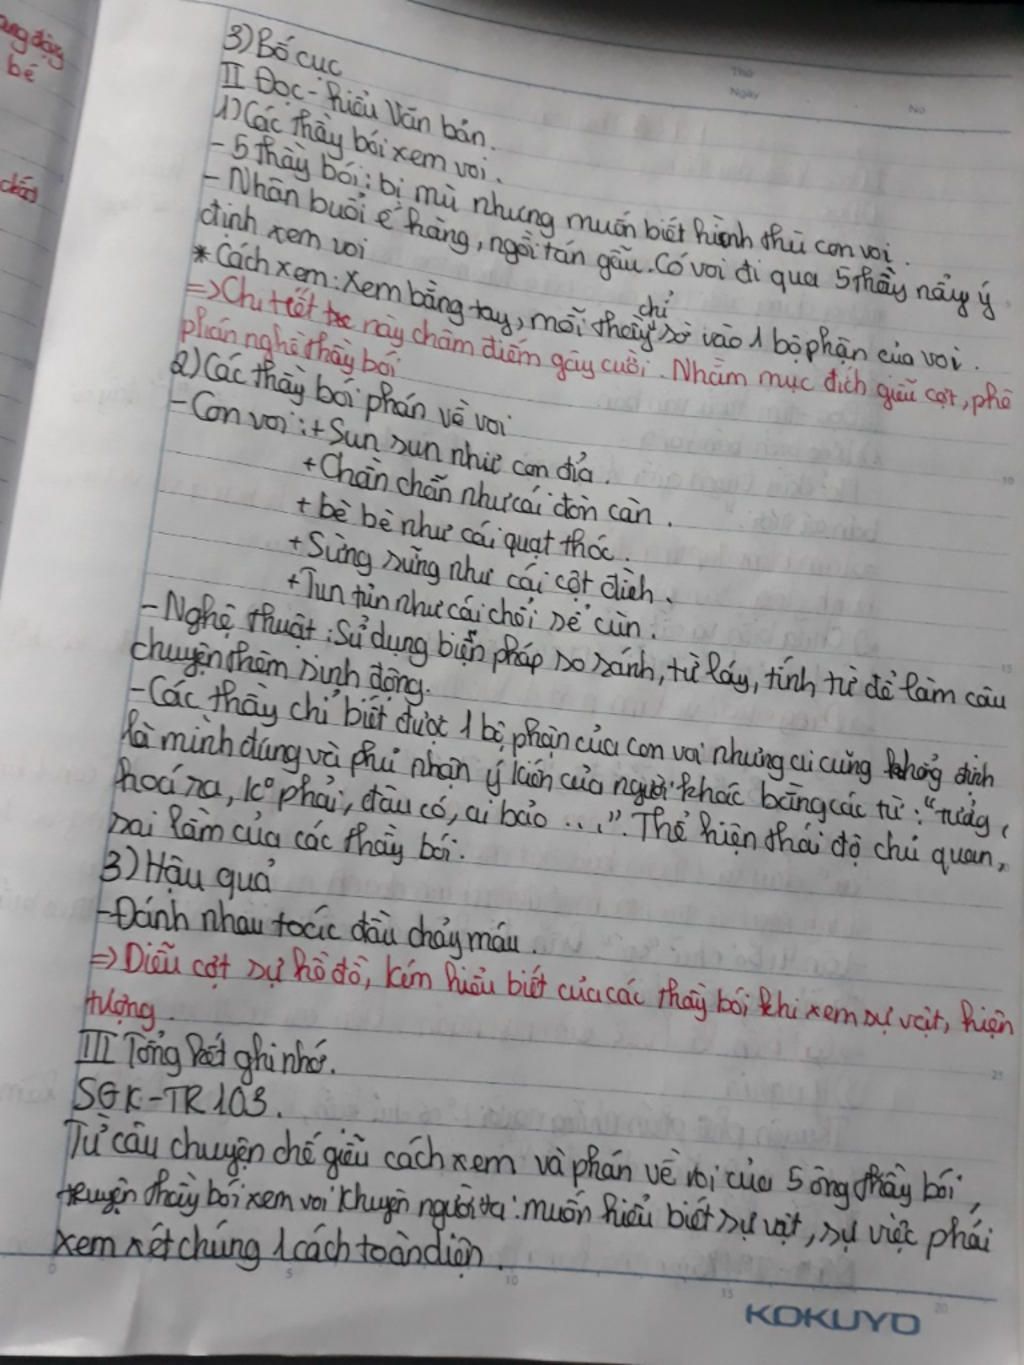 ang động
bé
chắn
Thứ
Ngày
No
3) Bố cục
II Đọc - hiểu Văn bản.
1) Các thầy bói xem voi.
- 5 thầy bói: bị mù nhưng muốn biết hình thù con voi.
- Nhân buổi ế hàng, ngồi tán gẫu. Có voi đi qua 5 thầy nảy ý
định xem voi
* Cách xem: Xem bằng tay, mỗi thầy chỉ sờ vào 1 bộ phận của voi.
=> Chi tiết này châm điếm gây cười. Nhằm mục đích giễu cợt, phê
phán nghề thầy bói
2) Các thầy bói phán về voi
- Con voi: + Sun sun như con đỉa.
+ Chần chẫn như cái đòn càn.
+ bè bè như cái quạt thóc.
+ Sừng sững như cái cột đình.
+ Tun tủn như cái chổi sể cùn.
- Nghệ thuật: Sử dụng biện pháp so sánh, từ láy, tính từ để làm câu
chuyện thêm sinh động.
- Các thầy chỉ biết được 1 bộ phận của con voi nhưng ai cũng khẳng định
là mình đúng và phủ nhận ý kiến của người khác bằng các từ: "tưởng,
hoá ra, ko phải, đâu có, ai bảo ...". Thể hiện thái độ chủ quan,
sai lầm của các thầy bói.
3) Hậu quả
- Đánh nhau toác đầu chảy máu.
=> Diễu cợt sự hồ đồ, kém hiểu biết của các thầy bói khi xem sự vật, hiện
tượng.
III Tổng kết ghi nhớ.
SGK - TR 103.
Từ câu chuyện chế giễu cách xem và phán về voi của 5 ông thầy bói,
truyện thầy bói xem voi khuyên người ta: muốn hiểu biết sự vật, sự việc phải
xem xét chúng 1 cách toàn diện.
0 5 10 15 20
KOKUYO